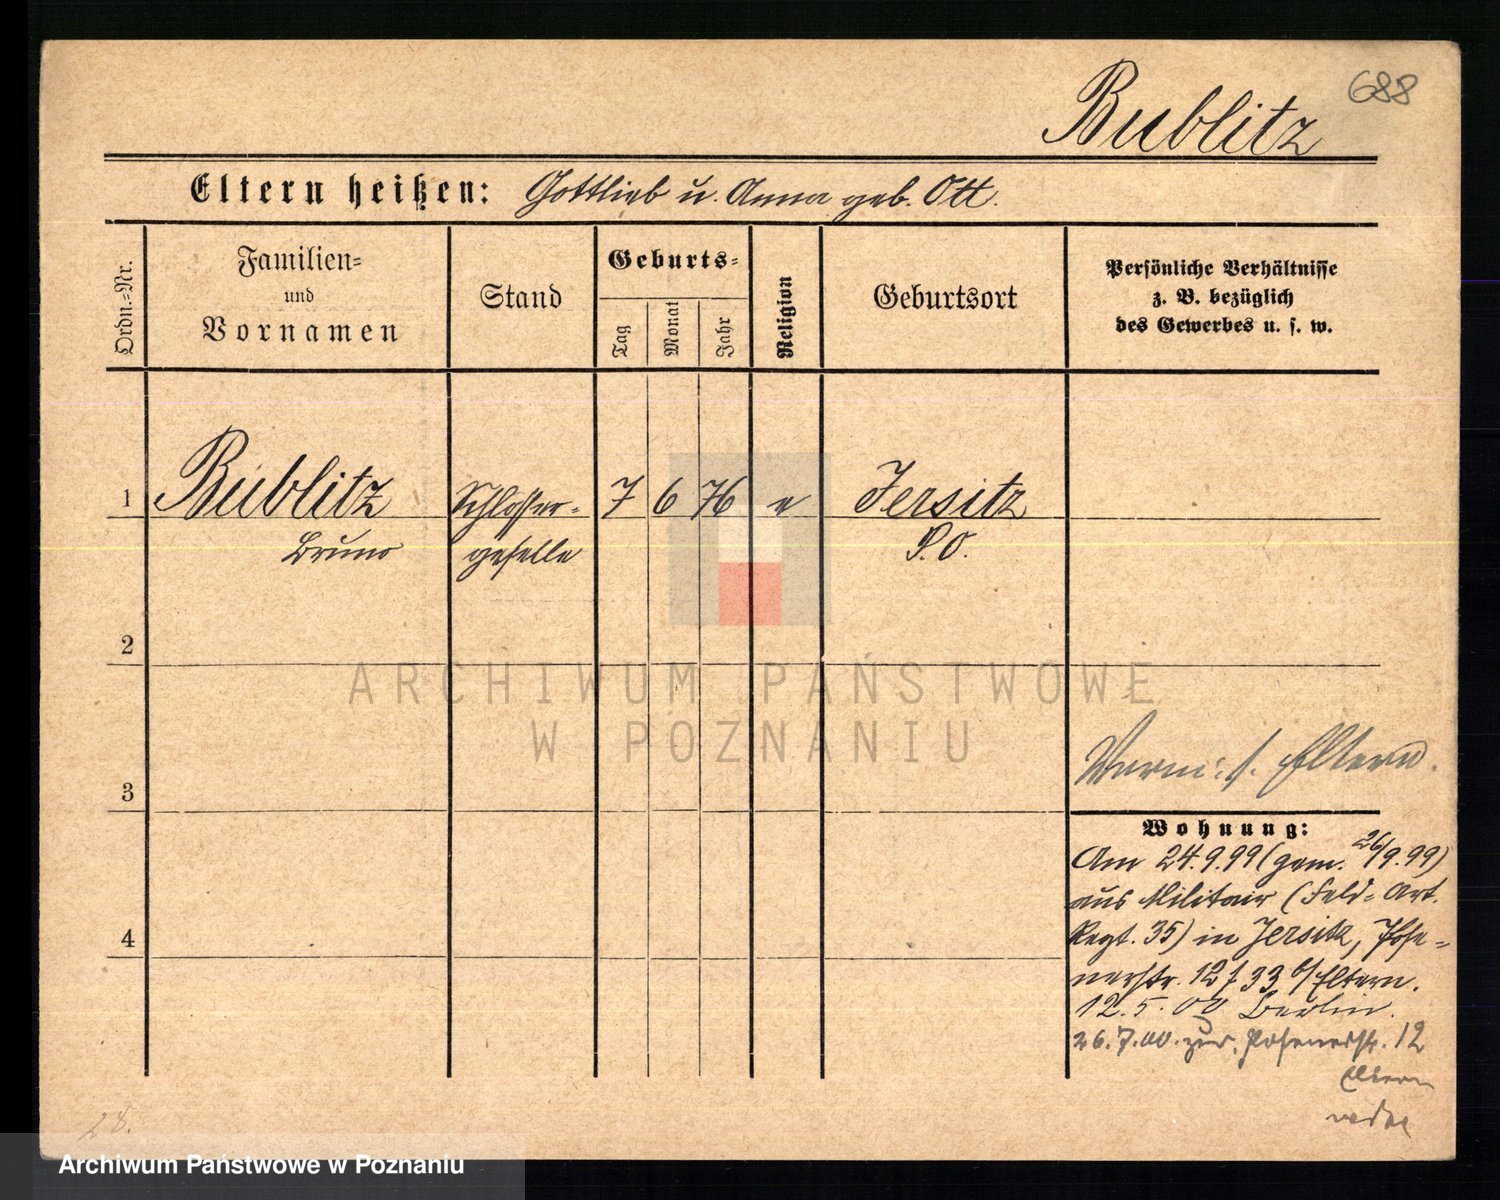 688
Bublitz
Eltern heißen: Gottlieb u. Anna geb. Ott.
Ordn.-Nr.
Familien-
und
Vornamen
Stand
Geburts-
Tag
Monat
Jahr
Religion
Geburtsort
Persönliche Verhältnisse
z. B. bezüglich
des Gewerbes u. s. w.
1 Bublitz Schlosser- 7 6 76 e Jersitz
Bruno geselle P.O.
2
ARCHIWUM PAŃSTWOWE
W POZNANIU
3
Eltern.
Wohnung:
Am 24.9.99 (gem. 26/9.99)
aus Militair (Feld-Art.
Regt. 35) in Jersitz, Pose-
4
nerstr. 12 f 33 b/Eltern.
12.5.00 Berlin.
26.7.00. zur. Posenerstr. 12
Eltern
28.
Archiwum Państwowe w Poznaniu